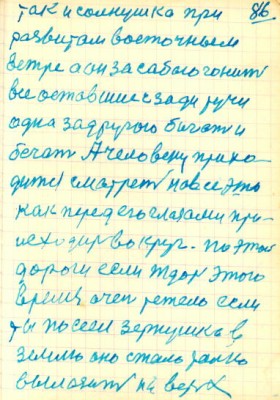 86
так и солнушка при
развитам восточныем
ветре а он за сабою гонит
все оставшие сзади тучи
одна за другою бигат и
бегат А человеку прихо-
дится сматреть на все это
как перед его глазами при-
исходит вокруг. по этой
дороги если ждат этого
время, очен ретело если
ты посеел зернушка в
землю оно стало ралко
вылазить на верх